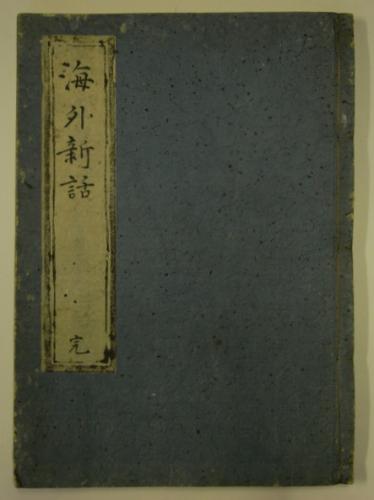 海外新話
完